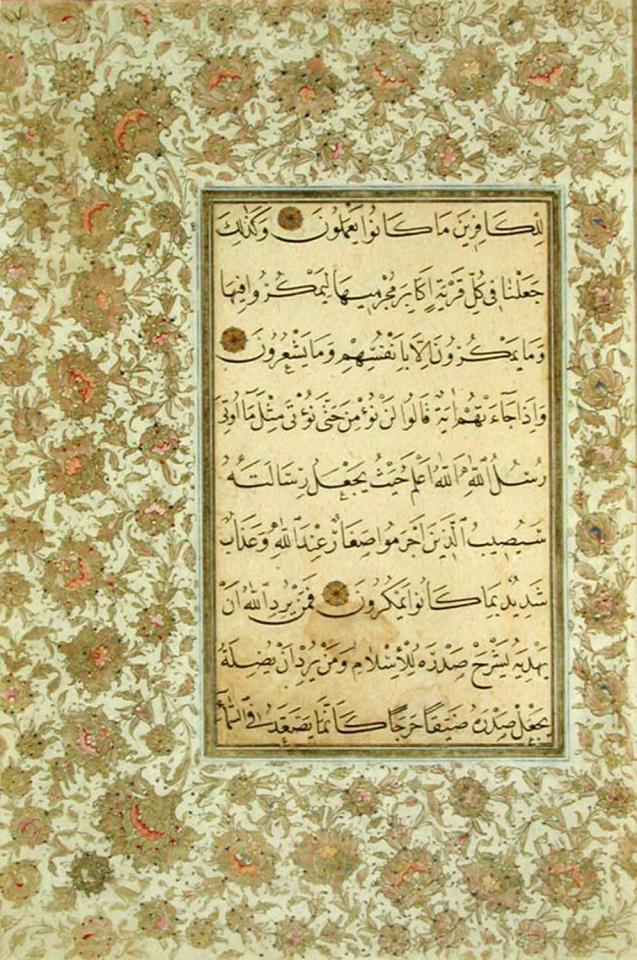 لِلْكَافِرِينَ مَا كَانُوا يَعْمَلُونَ وَكَذَلِكَ
جَعَلْنَا فِي كُلِّ قَرْيَةٍ أَكَابِرَ مُجْرِمِيهَا لِيَمْكُرُوا فِيهَا
وَمَا يَمْكُرُونَ إِلَّا بِأَنْفُسِهِمْ وَمَا يَشْعُرُونَ
وَإِذَا جَاءَتْهُمْ آيَةٌ قَالُوا لَنْ نُؤْمِنَ حَتَّى نُؤْتَى مِثْلَ مَا أُوتِيَ
رُسُلُ اللَّهِ اللَّهُ أَعْلَمُ حَيْثُ يَجْعَلُ رِسَالَتَهُ
سَيُصِيبُ الَّذِينَ أَجْرَمُوا صَغَارٌ عِنْدَ اللَّهِ وَعَذَابٌ
شَدِيدٌ بِمَا كَانُوا يَمْكُرُونَ فَمَنْ يُرِدِ اللَّهُ أَنْ
يَهْدِيَهُ يَشْرَحْ صَدْرَهُ لِلْإِسْلَامِ وَمَنْ يُرِدْ أَنْ يُضِلَّهُ
يَجْعَلْ صَدْرَهُ ضَيِّقًا حَرَجًا كَأَنَّمَا يَصَّعَّدُ فِي السَّمَاءِ